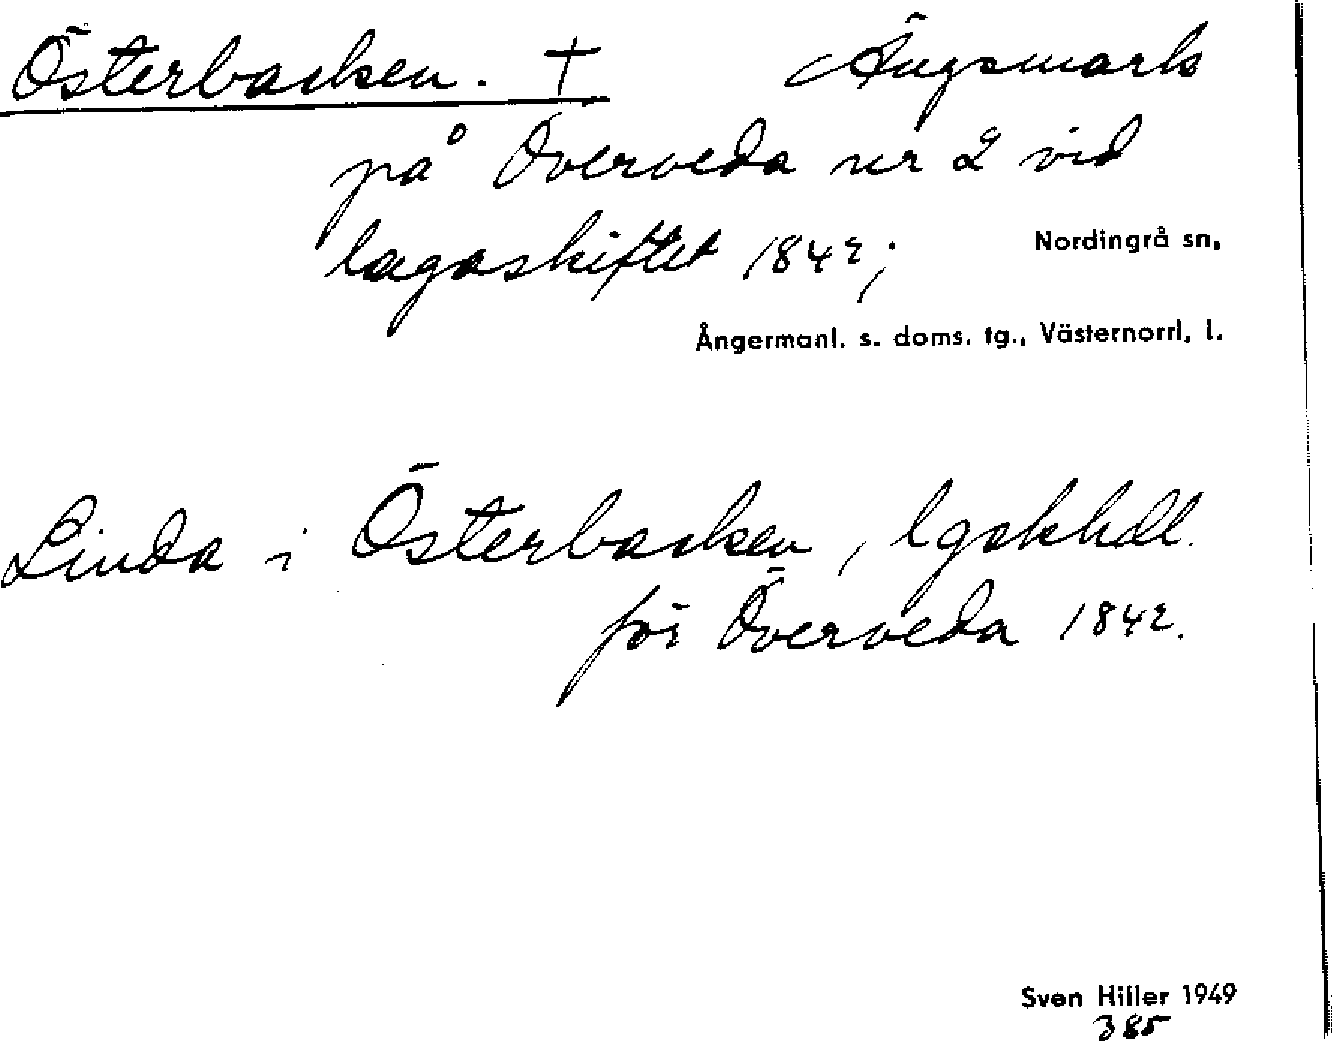 Österbacken. † Ängsmark
på Överveda nr 2 vid
lagaskiftet 1842;
Nordingrå sn,
Ångermanl. s. doms. tg., Västernorrl, l.
Linda i Österbacken, lgskhdl.
för Överveda 1842.
Sven Hiller 1949
385